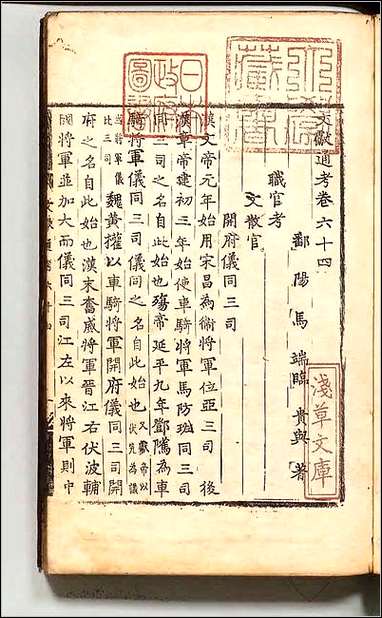 文獻通考卷六十四
鄱陽馬端臨貴與著
職官考
文散官
開府儀同三司
漢文帝元年始用宋昌為衛將軍位亞三司後
漢章帝建初三年始使車騎將軍馬防班同三司
同三司之名自此始也殤帝延平元年鄧隲為車
騎將軍儀同三司儀同之名自此始也
魏黃權以車騎將軍開府儀同三司開
府之名自此始也漢末奮威將軍晉江右伏波輔
國將軍並加大而儀同三司江左以來將軍則中
淺草文庫
日本政府圖書